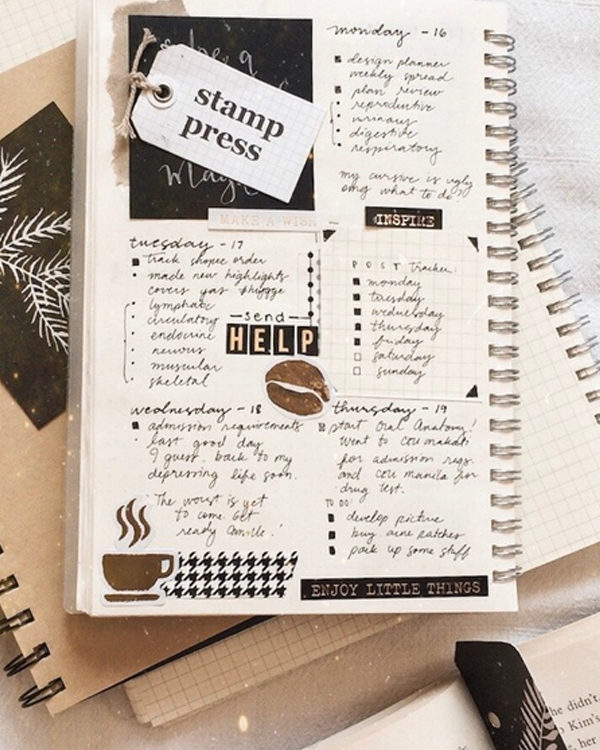 be a
magic
stamp
press
MAKE A WISH
monday - 16
design planner
weekly spread
plan review
reproductive
urinary
digestive
respiratory
my cursive is ugly
omg what to do?
INSPIRE
tuesday - 17
track shopee order
made new highlights
covers yas
lymphatic
circulatory
endocrine
nervous
muscular
skeletal
send
HELP
POST Tracker:
monday
tuesday
wednesday
thursday
friday
saturday
sunday
wednesday - 18
admission requirements
last good day
I guess. back to my
depressing life soon.
The worst is yet
to come. Get
ready
thursday - 19
start Oral Anatomy!
went to ceu makati
for admission reqs.
and ceu manila for
drug test.
TO DO:
develop picture
buy acne patches
pack up some stuff
ENJOY LITTLE THINGS
he didn't
Kim's
her